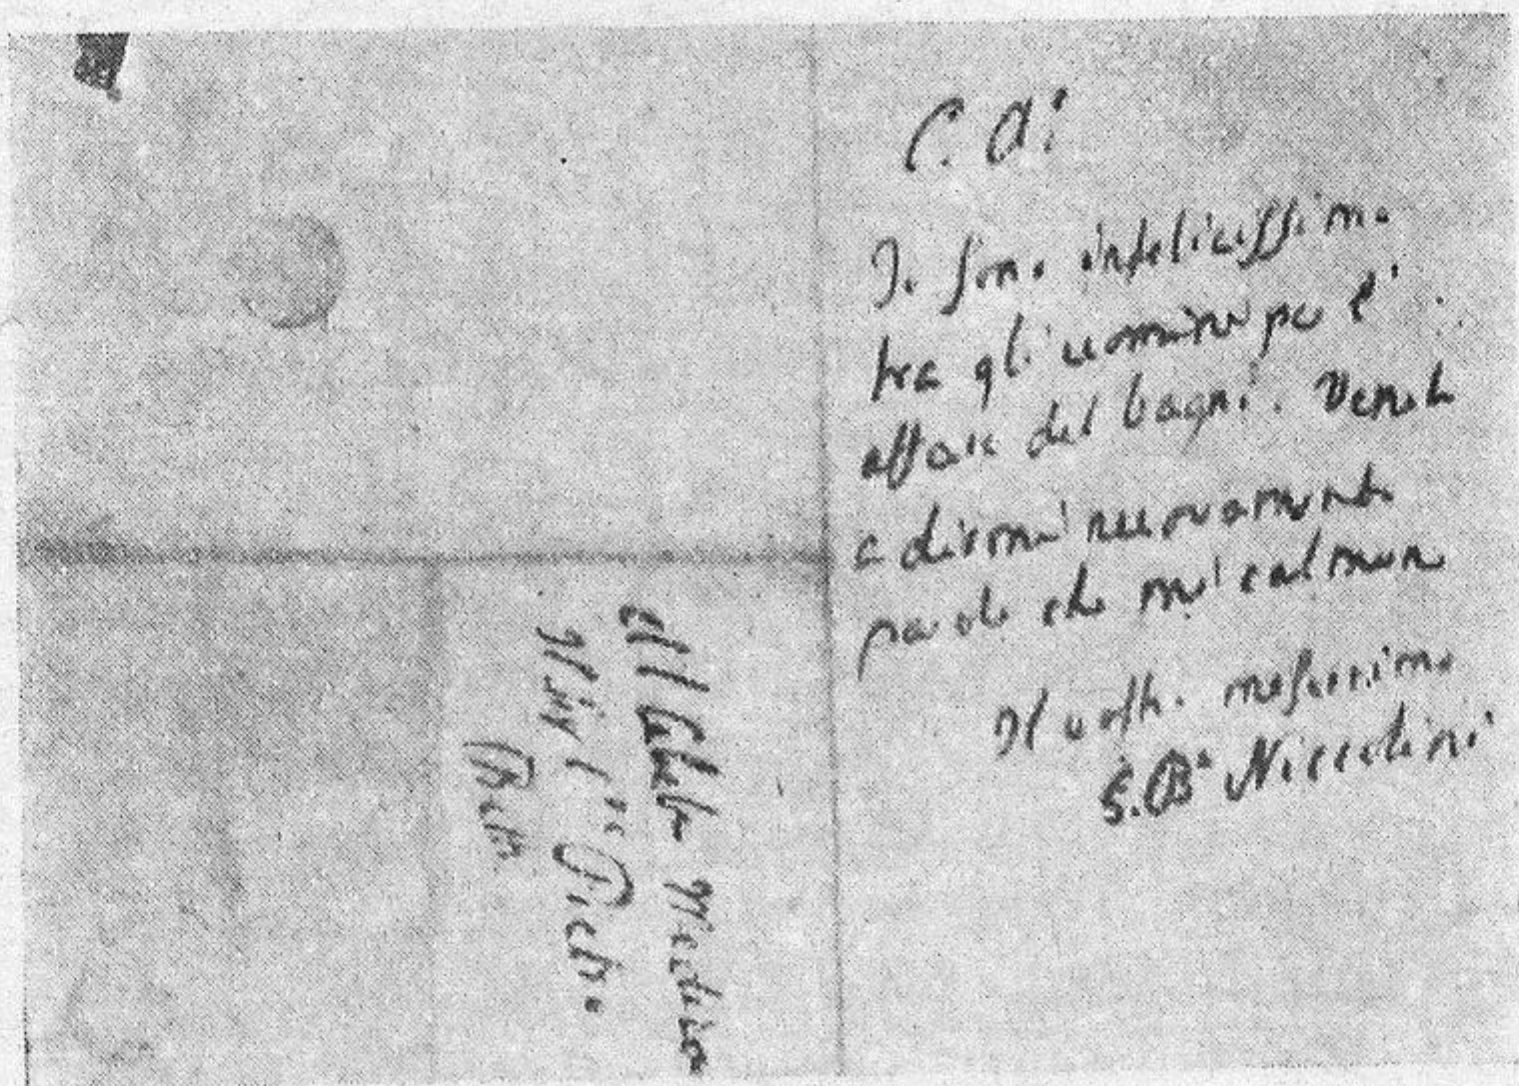 C. A:
Io sono infelicissimo
tra gli uomini per l'
affare del bagni. Venite
a dirmi nuovamente
parole che mi calmino
Il vostro
G. Ba Niccolini
Al Celebre Medico
Il Sig. Pietro